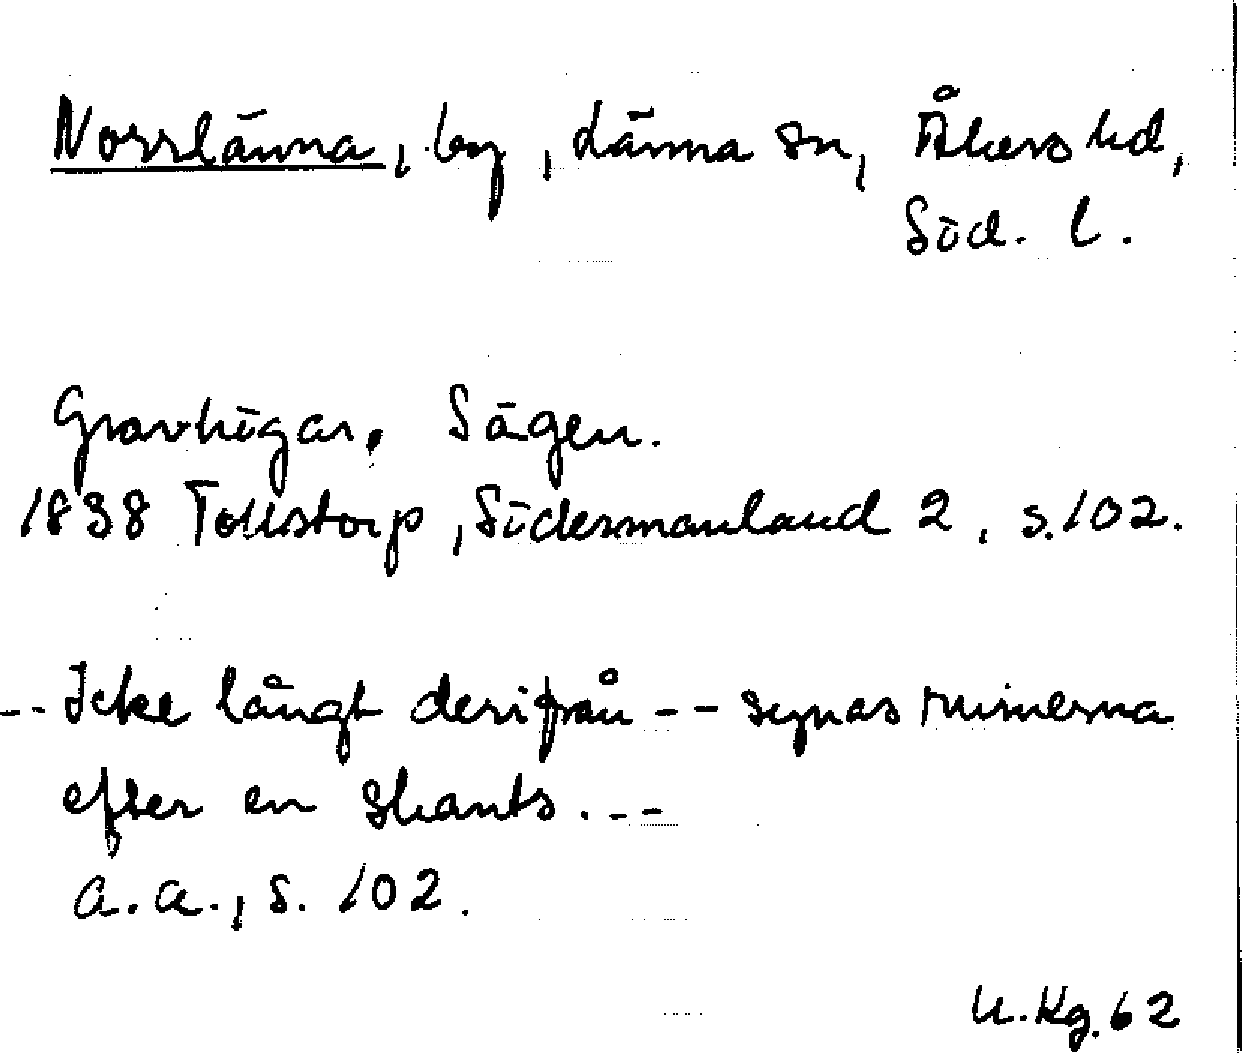 Norrlänna, by, Länna sn, Åkers hd,
Söd. l.
Gravhögar. Sägen.
1838 Tollstorp, Södermanland 2, s. 102.
-- Icke långt derifrån -- synas ruinerna
efter en skants. --
a.a., s. 102.
U. Kg. 62